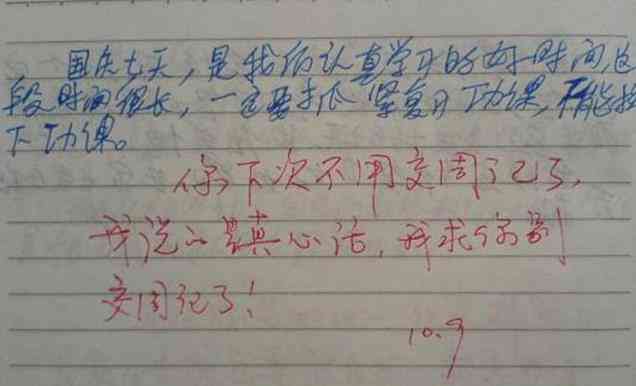 国庆七天，是我们认真学习的好时间这
段时间很长，一定要抓紧复习功课，不能拉
下功课。
你下次不用交周记了，
我说的是真心话，我求你别
交周记了！
10.9